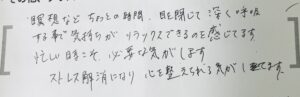 瞑想など ちょっとの時間、目を閉じて 深く呼吸
する事で 気持ちが リラックスできるのを感じてます
忙しい時こそ 必要な気がします
ストレス解消になり 心を整えられる気がしてます。